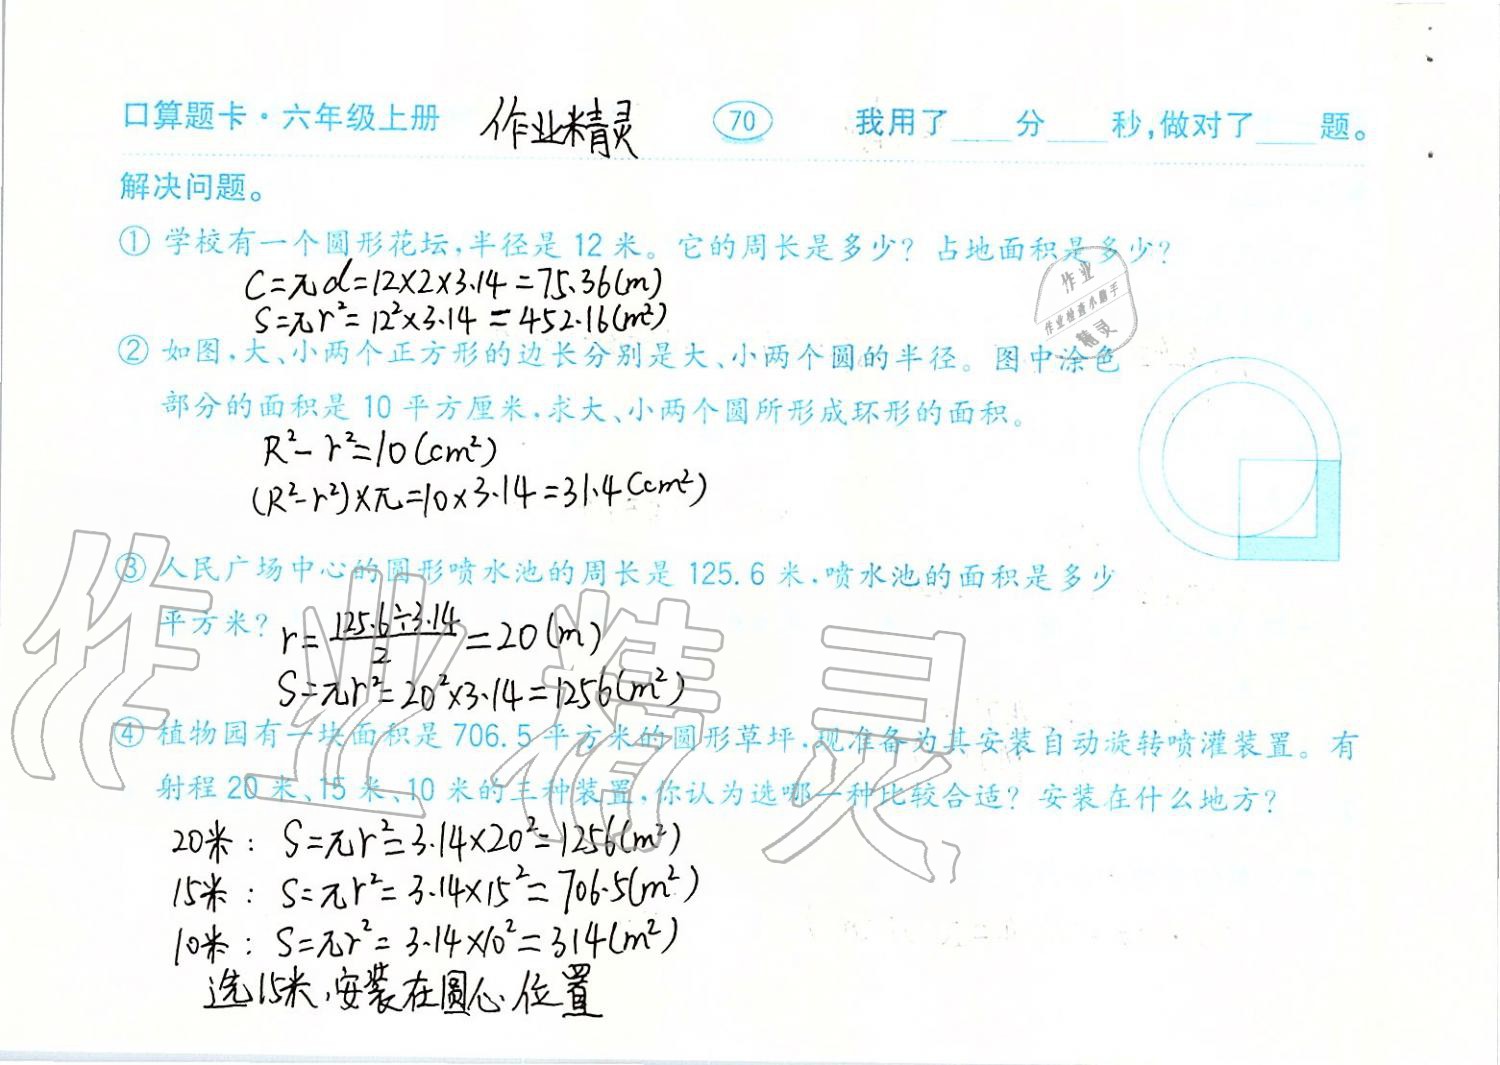 口算题卡·六年级上册 作业精灵 70 我用了____分____秒,做对了____题。
解决问题。
① 学校有一个圆形花坛,半径是 12 米。它的周长是多少? 占地面积是多少?
C=πd=12×2×3.14=75.36(m)
S=πr²=12²×3.14=452.16(m²)
作业
作业检查小助手
精灵
② 如图,大、小两个正方形的边长分别是大、小两个圆的半径。图中涂色
部分的面积是 10 平方厘米,求大、小两个圆所形成环形的面积。
R²-r²=10(cm²)
(R²-r²)×π=10×3.14=31.4(cm²)
③ 人民广场中心的圆形喷水池的周长是 125.6 米,喷水池的面积是多少
平方米? r=125.6÷3.14/2=20(m)
S=πr²=20²×3.14=1256(m²)
作业精灵
④ 植物园有一块面积是 706.5 平方米的圆形草坪,现准备为其安装自动旋转喷灌装置。有
射程 20 米、15 米、10 米的三种装置,你认为选哪一种比较合适? 安装在什么地方?
20米: S=πr²=3.14×20²=1256(m²)
15米: S=πr²=3.14×15²=706.5(m²)
10米: S=πr²=3.14×10²=314(m²)
选15米,安装在圆心位置